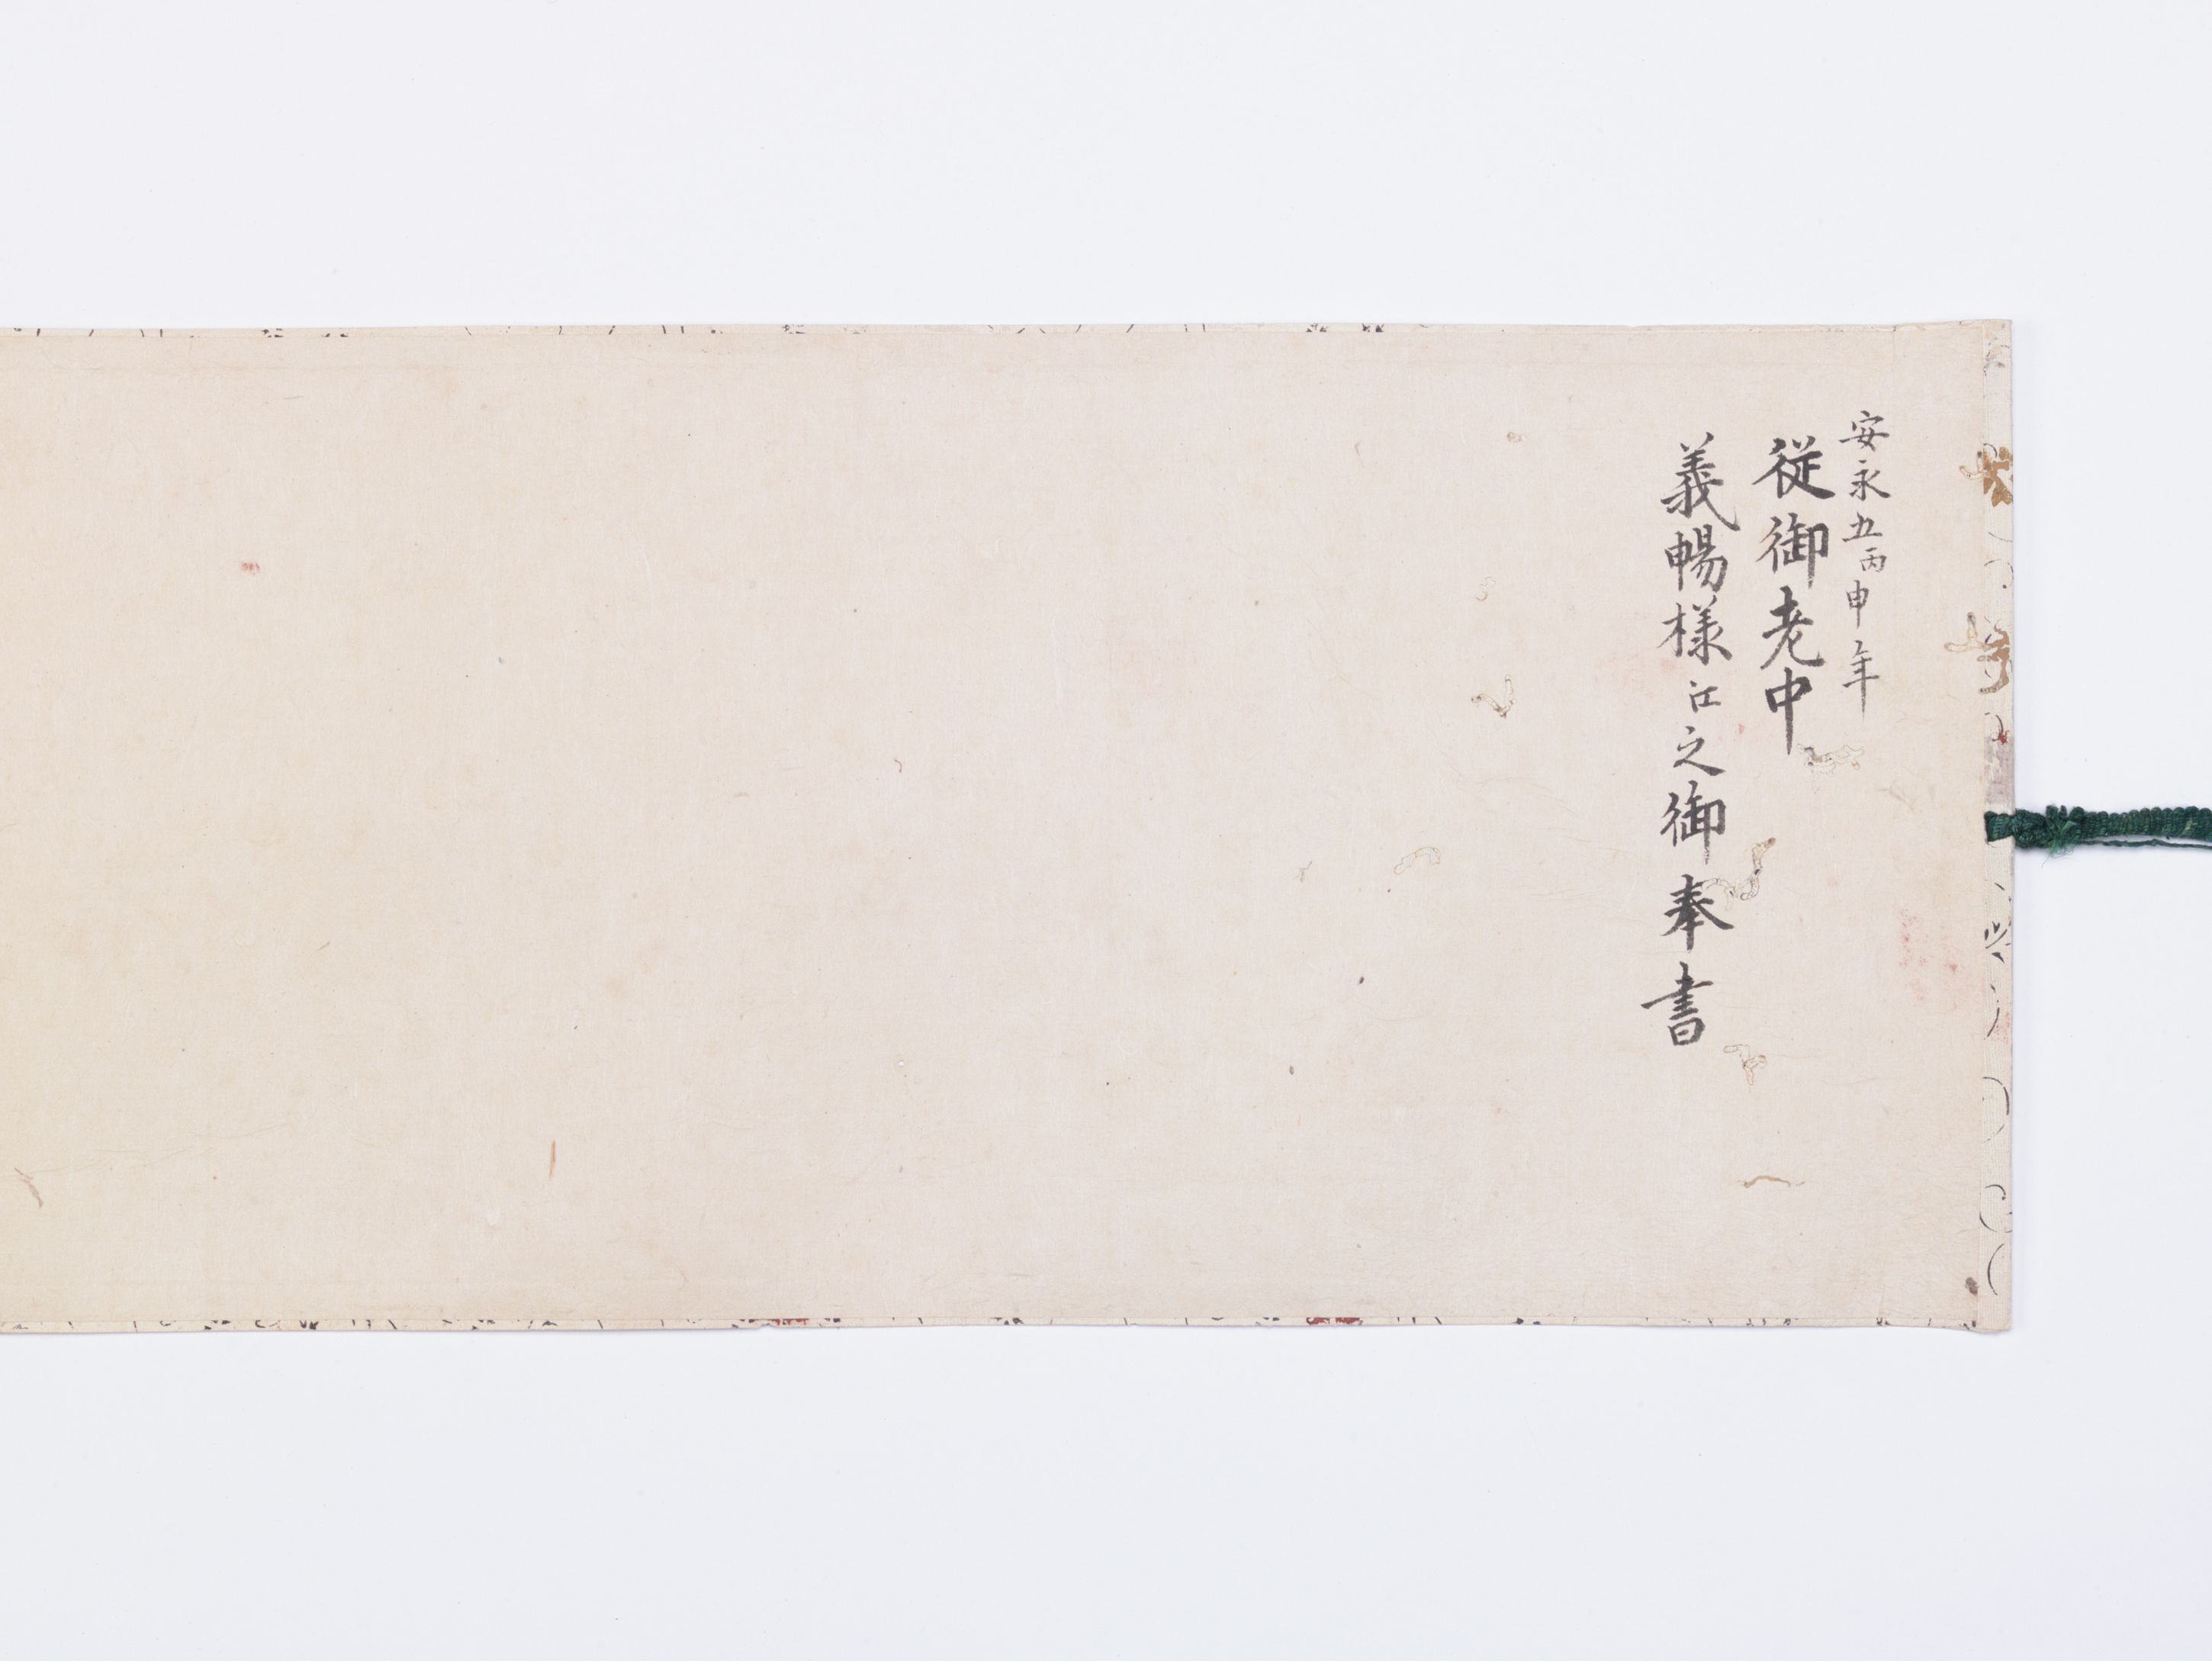 安永五丙申年
従御老中
義暢様江之御奉書